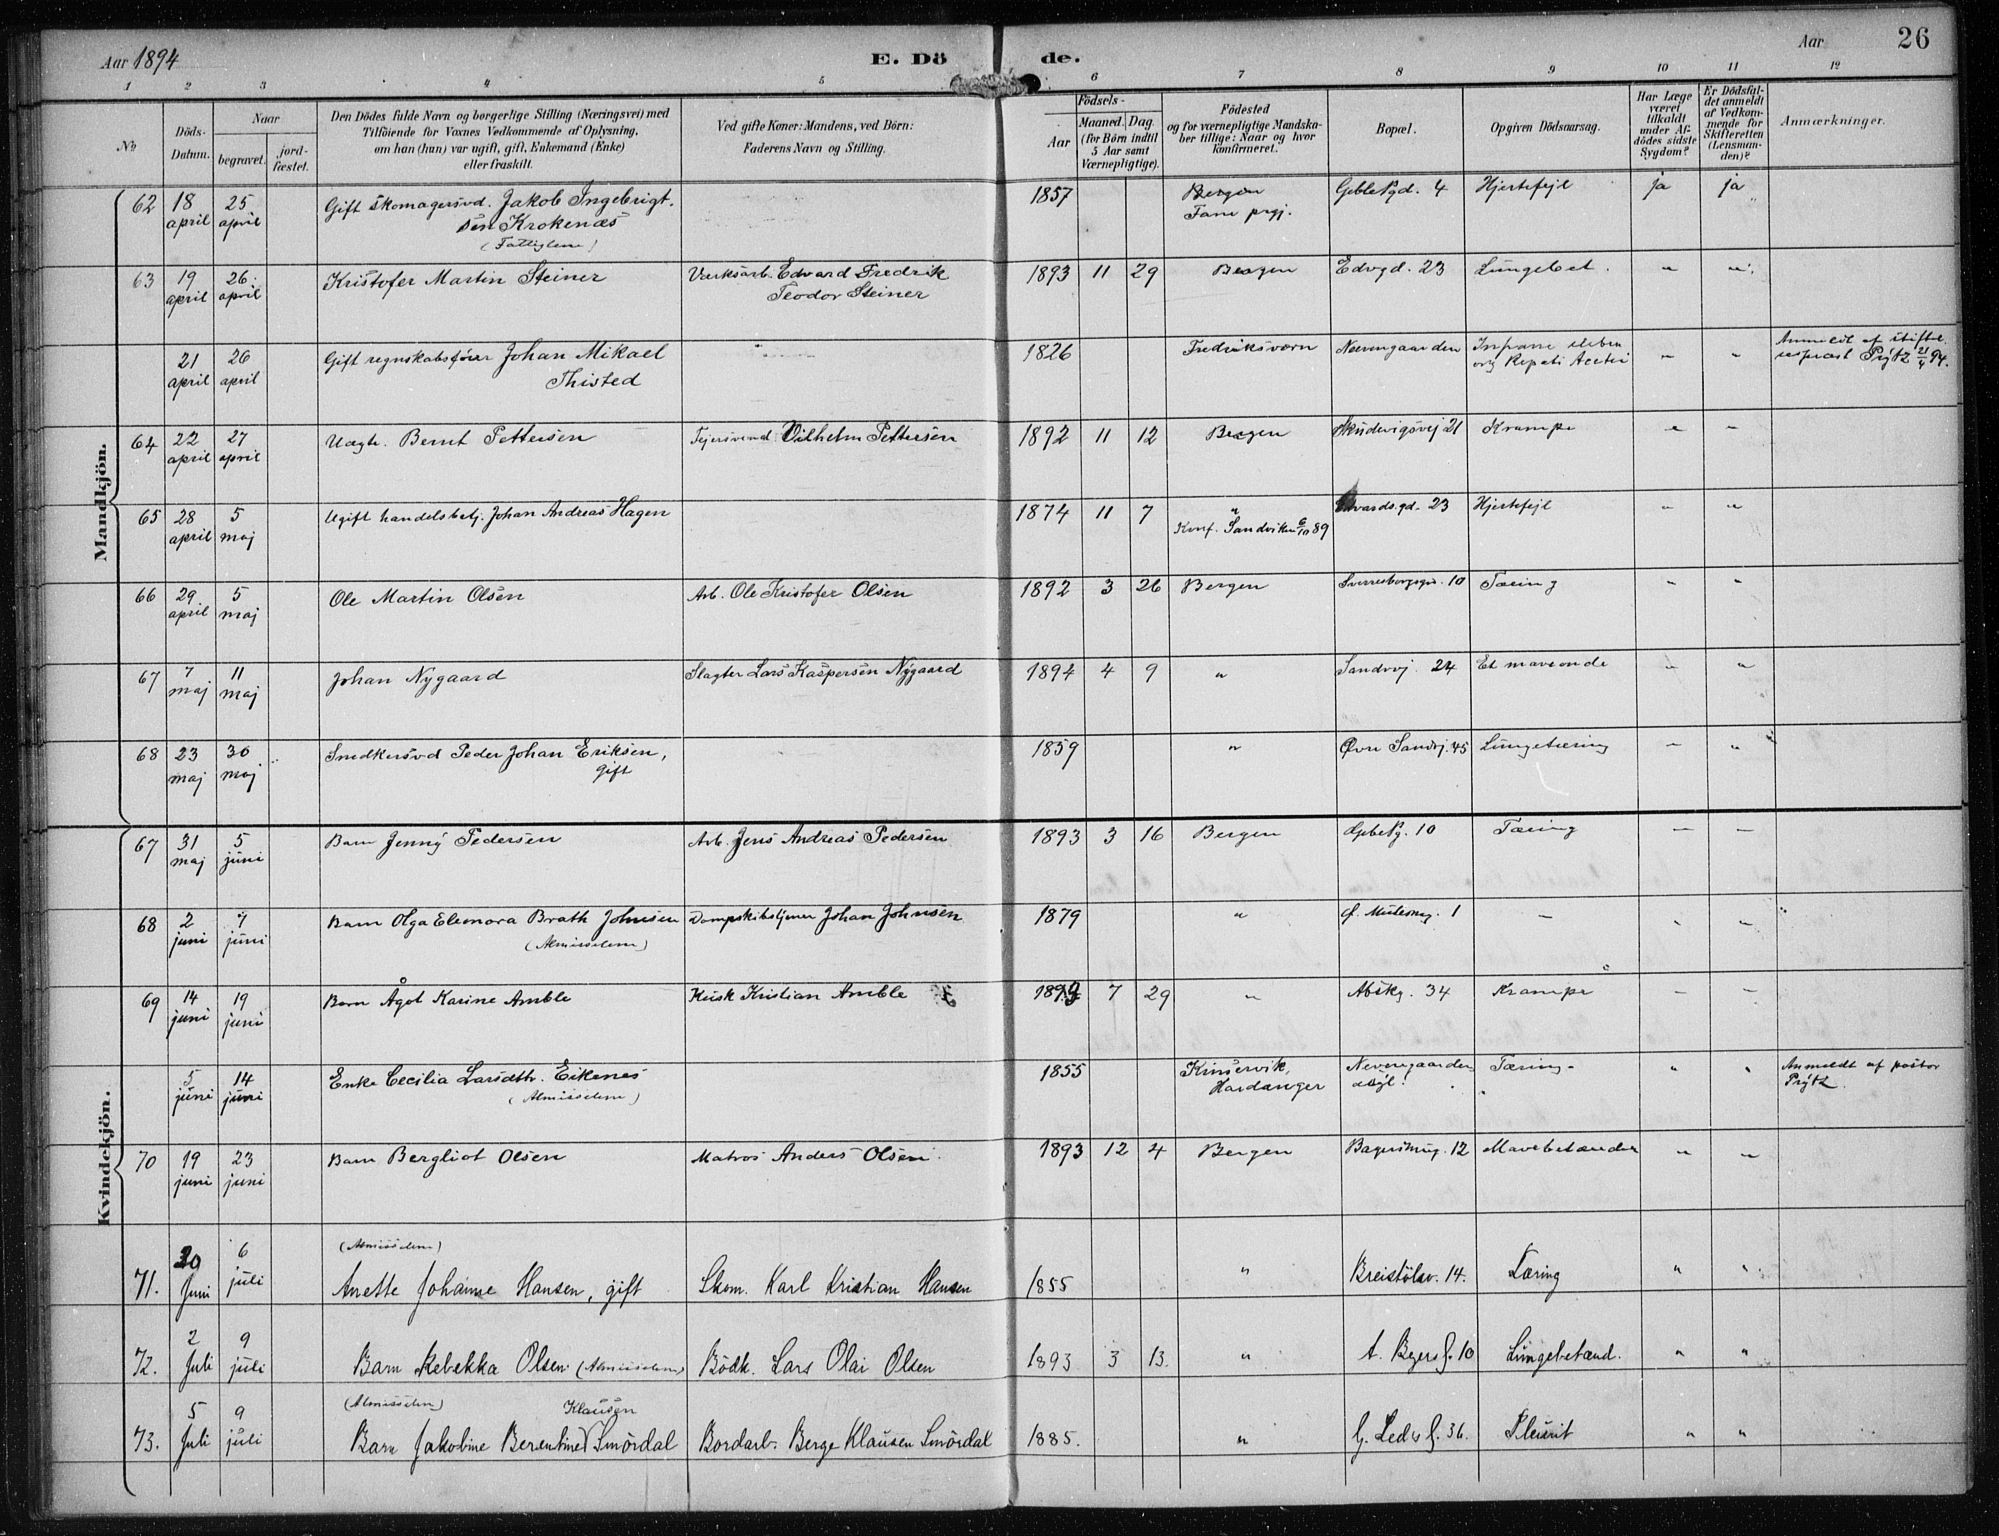 Aar 1894
E. Döde.
Aar
26
1 2 3 4 5 6 7 8 9 10 11 12
No
Döds-Datum.
Naar
begravet.
jord-fæstet.
Den Dödes fulde Navn og borgerlige Stilling (Næringsvei) med
Tilföiende for Voxnes Vedkommende af Oplysning,
om han (hun) var ugift, gift, Enkemand (Enke)
eller fraskilt.
Ved gifte Koner: Mandens, ved Börn:
Faderens Navn og Stilling.
Födsels-
Aar
Maaned. Dag.
(for Börn indtil
5 Aar samt
Værnepligtige).
Födested
og for værnepligtige Mandska-
ber tillige: Naar og hvor
konfirmeret.
Bopæl.
Opgiven Dödsaarsag.
Har Læge
været
tilkaldt
under Af-
dödes sidste
Sygdom?
Er Dödsfal-
det anmeldt
af Vedkom-
mende for
Skifteretten
(Lensman-
den)?
Anmærkninger.
Mandkjön.
62 18 april 25 april Gift skomagersvd. Jakob Ingebrigt. 1857 Bergen Geblekgd. 4 Hjertefejl ja ja
sen Krokenæs Fane prgj.
(Fattiglem)
63 19 april 26 april Kristofer Martin Steiner Værksarb. Edvard Fredrik 1893 11 29 Bergen Edvgd. 23 Lungebet. " "
Teodor Steiner
21 april 26 april Gift regnskabsfører Johan Mikael 1826 Fredriksværn Nevengaarden " " Anmeldt af
Thisted Prÿtz 21/4 94.
64 22 april 27 april Uægte. Bernt Pettersen Fejersvend Vilhelm Pettersen 1892 11 12 Bergen Skudevigsvej 21 Krampe " "
65 28 april 5 maj Ugift handelsbetj. Johan Andreas Hagen 1874 11 7 " Edvardsgd. 23 Hjertefejl " "
Konf. Sandviken 6/10 89
66 29 april 5 maj Ole Martin Olsen Arb. Ole Kristofer Olsen 1892 3 26 Bergen Sverresborgsgd. 10 Tæring " "
67 7 maj 11 maj Johan Nygaard Slagter Lars Kaspersen Nÿgaard 1894 4 9 " Sandvvj 24 Et maveonde " "
68 23 maj 30 maj Snedkersvd Peder Johan Eriksen, 1859 " Øvre Sandvj. 45 Lungetæring " "
gift
Kvindekjön.
67 31 maj 5 juni Barn Jennÿ Pedersen Arb. Jens Andreas Pedersen 1893 3 16 Bergen 10 Tæring — —
68 2 juni 7 juni Barn Olga Elenora Brath Johnsen Dampskibstjener Johan Johnsen 1879 " 1 — " "
(Almisselem)
69 14 juni 19 juni Barn Ågot Karine Amble Kusk Kristian Amble 7 29 " Abskg. 34 Krampe — —
5 juni 14 juni Enke Cecilia Larsdtr. Eikenes 1855 Kinservik, Nevengaarden Tæring " " Anmeldt af pastor
(Almisselem) Hardanger asÿl. Prÿtz.
70 19 juni 23 juni Barn Bergliot Olsen Matros Anders Olsen 1893 12 4 Bergen 12 Mavebetændelse " "
71. 30 Juni 6 juli (Almisselem)
Anette Johanne Hansen, gift Skom. Karl Kristian Hansen 1855 " Breistölsv. 14. Tæring " "
72. 2 Juli 9 juli Barn Rebekka Olsen (Almisselem) Bödk. Lars Olai Olsen 1893 3 13. " 10 Lungebetænd. " "
73. 5 Juli 9 juli (Almisselem) Klausen
Barn Jakobine Berentine Smördal Bordarb. Berge Klausen Smördal 1885. " 36. Pleurit " "